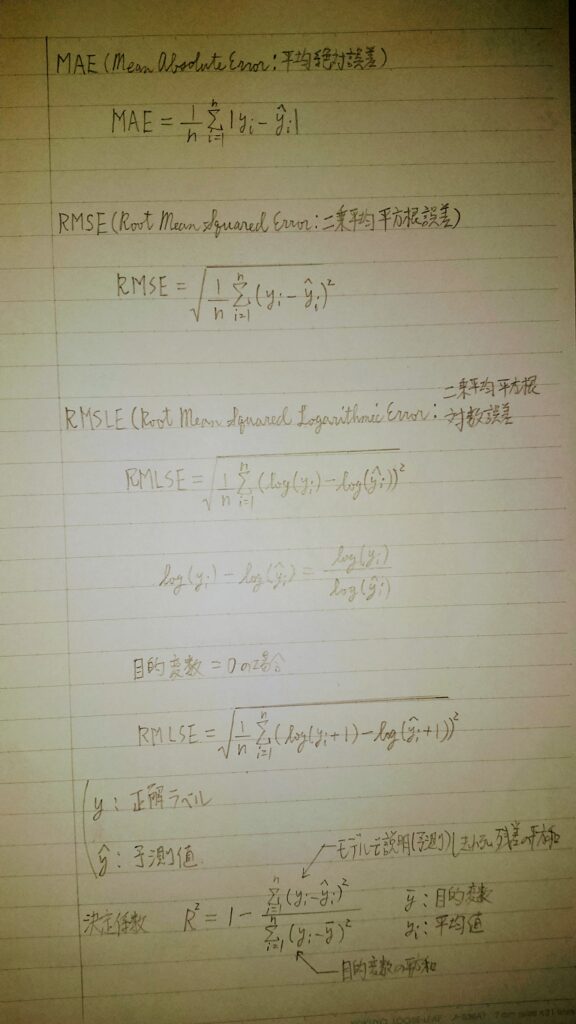 MAE (Mean Absolute Error: 平均絶対誤差)
MAE = 1/n Σ_{i=1}^{n} |y_i − ŷ_i|
RMSE (Root Mean Squared Error: 二乗平均平方根誤差)
RMSE = √(1/n Σ_{i=1}^{n} (y_i − ŷ_i)²)
RMSLE (Root Mean Squared Logarithmic Error: 二乗平均平方根
対数誤差
RMLSE = √(1/n Σ_{i=1}^{n} (log(y_i) − log(ŷ_i))²)
log(y_i) − log(ŷ_i) = log(y_i) / log(ŷ_i)
目的変数 = 0の場合
RMLSE = √(1/n Σ_{i=1}^{n} (log(y_i+1) − log(ŷ_i+1))²)
y: 正解ラベル
ŷ: 予測値
モデルで説明(予測)しきれない残差の平方和
決定係数 R² = 1 − Σ_{i=1}^{n} (y_i − ŷ_i)² / Σ_{i=1}^{n} (y_i − ȳ)²
ȳ: 目的変数
y_i: 平均値
目的変数の平方和